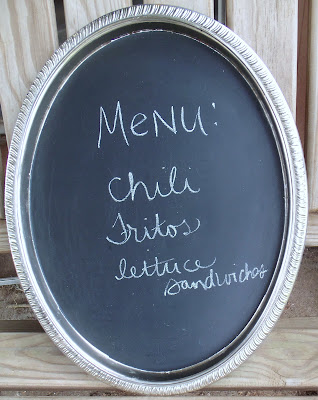 Menu:
Chili
Fritos
lettuce
sandwiches